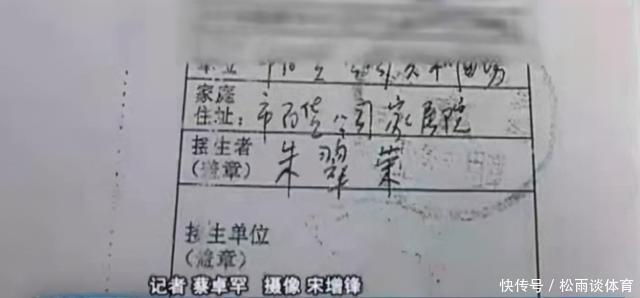 家庭
住址：市百货公司家属院
接生者
(签章) 朱翠荣
接生单位
(签章)
记者 蔡卓罕 摄像 宋增锋
快传号 / 松雨谈体育